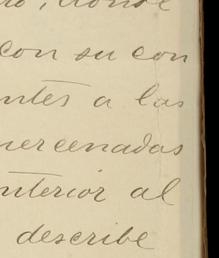 donde
con su con
ntes a las
mercenadas
nterior al
describe